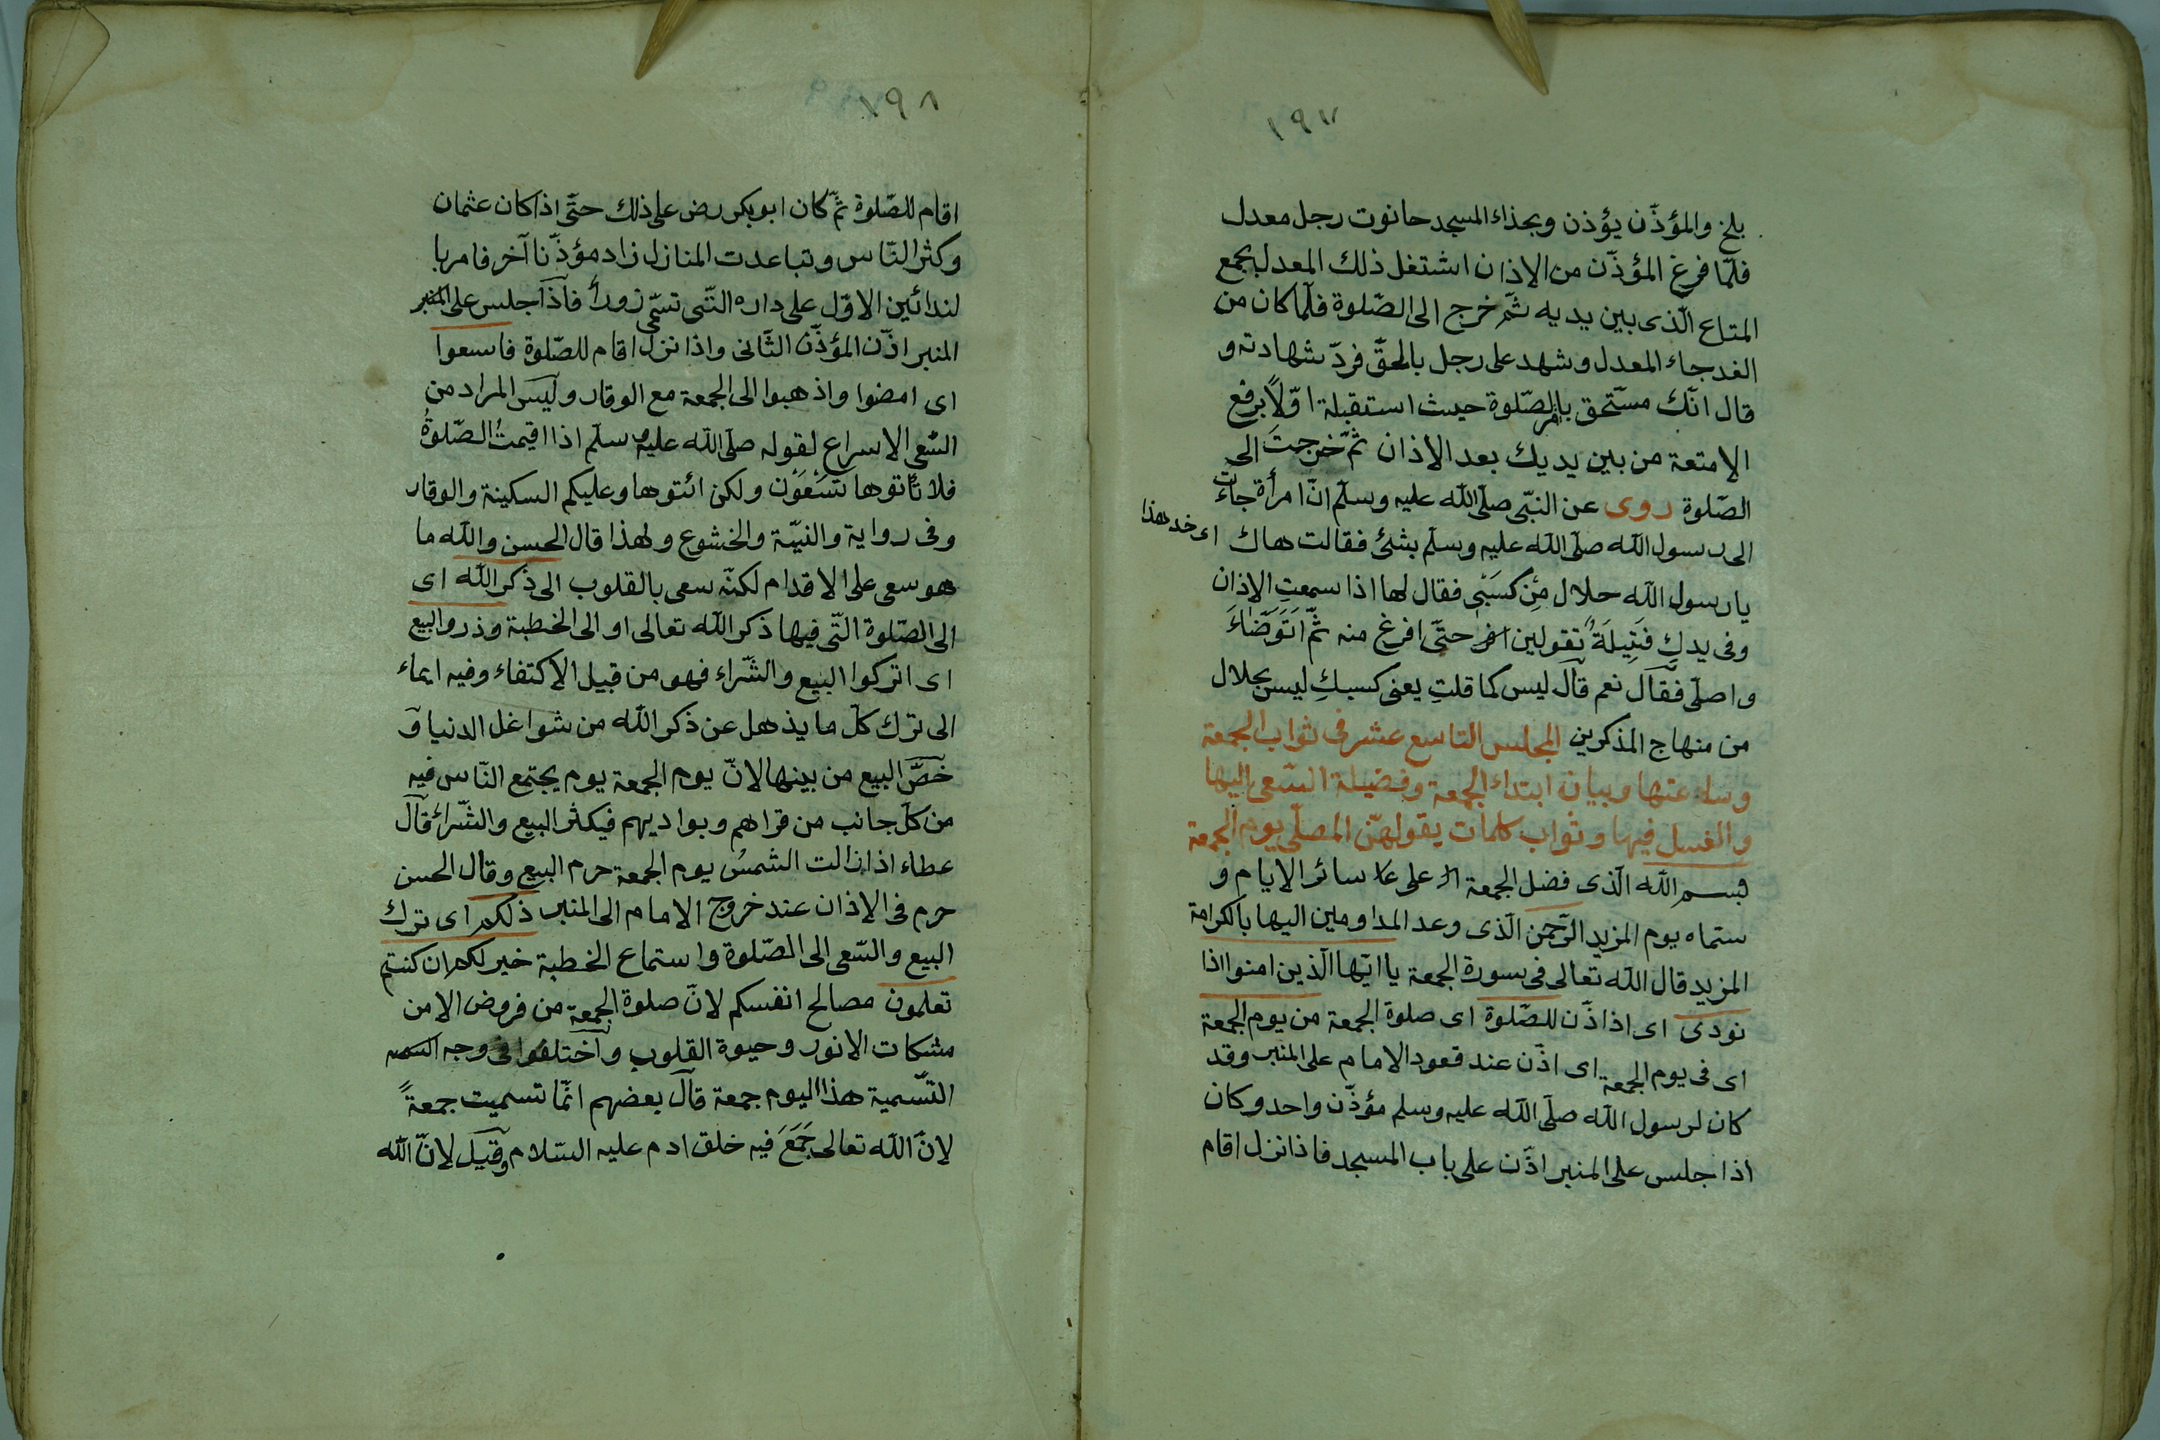 ١٩٧
بلخ والمؤذّن يؤذن وبحذاء المسجد حانوت رجل معدل
فلمّا فرغ المؤذّن من الاذان اشتغل ذلك المعدل بجمع
المتاع الّذى بين يديه ثمّ خرج الى الصّلوة فلمّا كان من
الغد جاء المعدل وشهد على رجل بالحقّ فردّ شهادته و
قال انّك مستحق بالصّلوة حيث استقبلة اوّلاً برفع
الامتعة من بين يديك بعد الاذان ثمّ خرجتَ الى
الصّلوة روى عن النبّى صلّى اللّه عليه وسلّم انّ امرأة جاءت
الى رسول اللّه صلّى اللّه عليه وسلّم بشئ فقالت هاك اى خد هذا
يارسول اللّه حلال مِّن كَسَبْى فقال لها اذا سمعتِ الاذان
وفى يدكِ فَتِيلَةٌ تقولين حتّى افرغ منه ثمّ اَتَوَضّاءَ
واصلّى فقال نعم قال ليس كما قلتِ يعنى كسبكِ ليس بحلال
من منهاج المذكرين المجلس التاسع عشر فى ثواب الجمعة
وساعتها وبيان ابتداء الجمعة وفضيلة السّعى اليها
والغسل فيها وثواب كلمات يقولهنّ المصلّى يوم الجمعة
بسم اللّه الّذى فضل الجمعة على سائر الايام و
ستماه يوم المزيد الرّحمن الّذى وعد المداومين اليها بالكرامة
المزيد قال اللّه تعالى فى سورة الجمعة يا ايّها الّذين امنوا اذا
نودى اى اذا اذّن للصّلوة اى صلوة الجمعة من يوم الجمعة
اى فى يوم الجمعة اى اذّن عند قعود الامام على المنبر وقد
كان لرسول اللّه صلّى اللّه عليه وسلم مؤذّن واحد وكان
اذا جلس على المنبر اذّن على باب المسجد فاذا نزل اقام
١٩٨
اقام للصّلوة ثمّ كان ابو بكر رض على ذلك حتّى اذا كان عثمان
وكثر النّاس وتباعدت المنازل زاد مؤذّنا آخر فامر با
لندائين الاوّل على داره التّى تسمّى زورأ فاذا جلس على المنبر
المنبر اذّن المؤذّن الثّانى واذا نزل اقام للصّلوة فاسعوا
اى امضوا واذهبوا الى الجمعة مع الوقار وليس المراد من
السّعى الاسراع لقوله صلّى اللّه عليه وسلّم اذا اقيمتُ الصّلوةُ
فلا تأتوها تَسْعَوْن ولكن ائتوها وعليكم السكينة والوقار
وفى رواية والنيّة والخشوع ولهذا قال الحسن واللّه ما
هو سعى على الاقدام لكنّه سعى بالقلوب الى ذكر اللّه اى
الى الصّلوة التّى فيها ذكر اللّه تعالى او الى الخطبة وذروالبيع
اى اتركوا البيع والشّراء فهو من قبيل الاكتفاء وفيه ايماء
الى ترك كلّ ما يذهل عن ذكر اللّه من شواغل الدنيا و
خصّ البيع من بينها لانّ يوم الجمعة يوم يجتمع النّاس فيه
من كلّ جانب من قراهم وبواديهم فيكثر البيع والشّراء قال
عطاء اذا زالت الشمسُ يوم الجمعة حرم البيع وقال الحسن
حرم فى الاذان عند خروج الامام الى المنبر ذلكم اى ترك
البيع والسّعى الى الصّلوة واستماع الخطبة خير لكم ان كنتم
تعلمون مصالح انفسكم لانّ صلوة الجمعة من فروض الامن
مشكات الانور وحيوة القلوب واختلفوا فى وجه
التّسمية هذا اليوم جمعة قال بعضهم انّما تسميت جمعةً
لانّ اللّه تعالى جَمَعَ فيه خلق ادم عليه السّلام وقيل لانّ اللّه